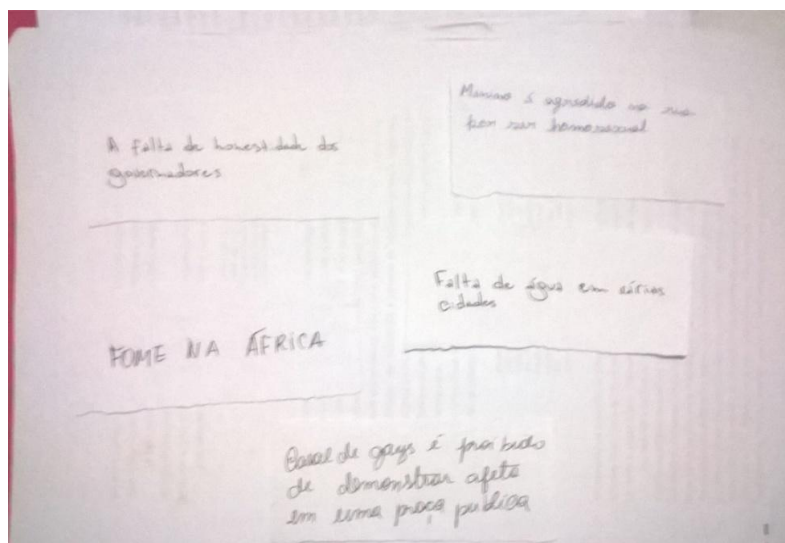 A falta de honestidade dos
governadores
Menino é agredido na rua
por ser homosexual
Falta de água em várias
cidades
FOME NA ÁFRICA
Casal de gays é proibido
de demonstrar afeto
em uma praça publica